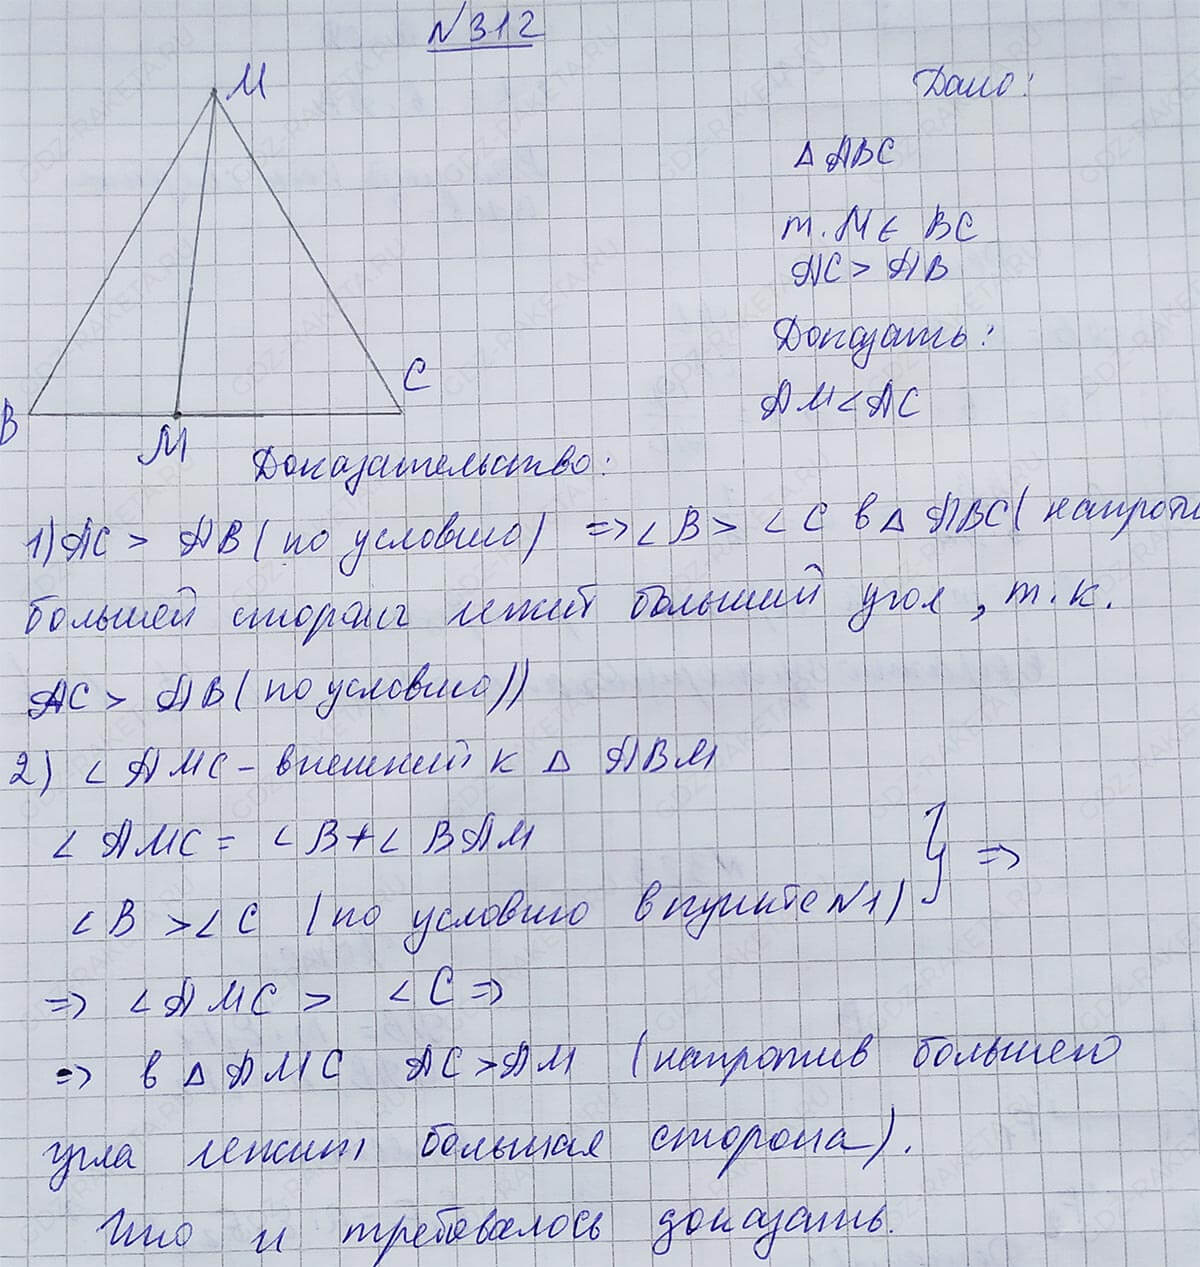 №312
M
Дано:
△ ABC
т. M ∈ BC
AC > AB
Доказать:
AM < AC
C
B
M
Доказательство:
1) AC > AB (по условию) => ∠B > ∠C в △ ABC (напроти
большей стороны лежит больший угол, т.к.
AC > AB (по условию))
2) ∠ AMC - внешний к △ ABM
∠ AMC = ∠B + ∠ BAM
} =>
∠B > ∠C (по условию в пункте №1)
=> ∠AMC > ∠C =>
=> в △ AMC AC > AM (напротив большего
угла лежит большая сторона).
Что и требовалось доказать.
GDZ-RAKETA.RU